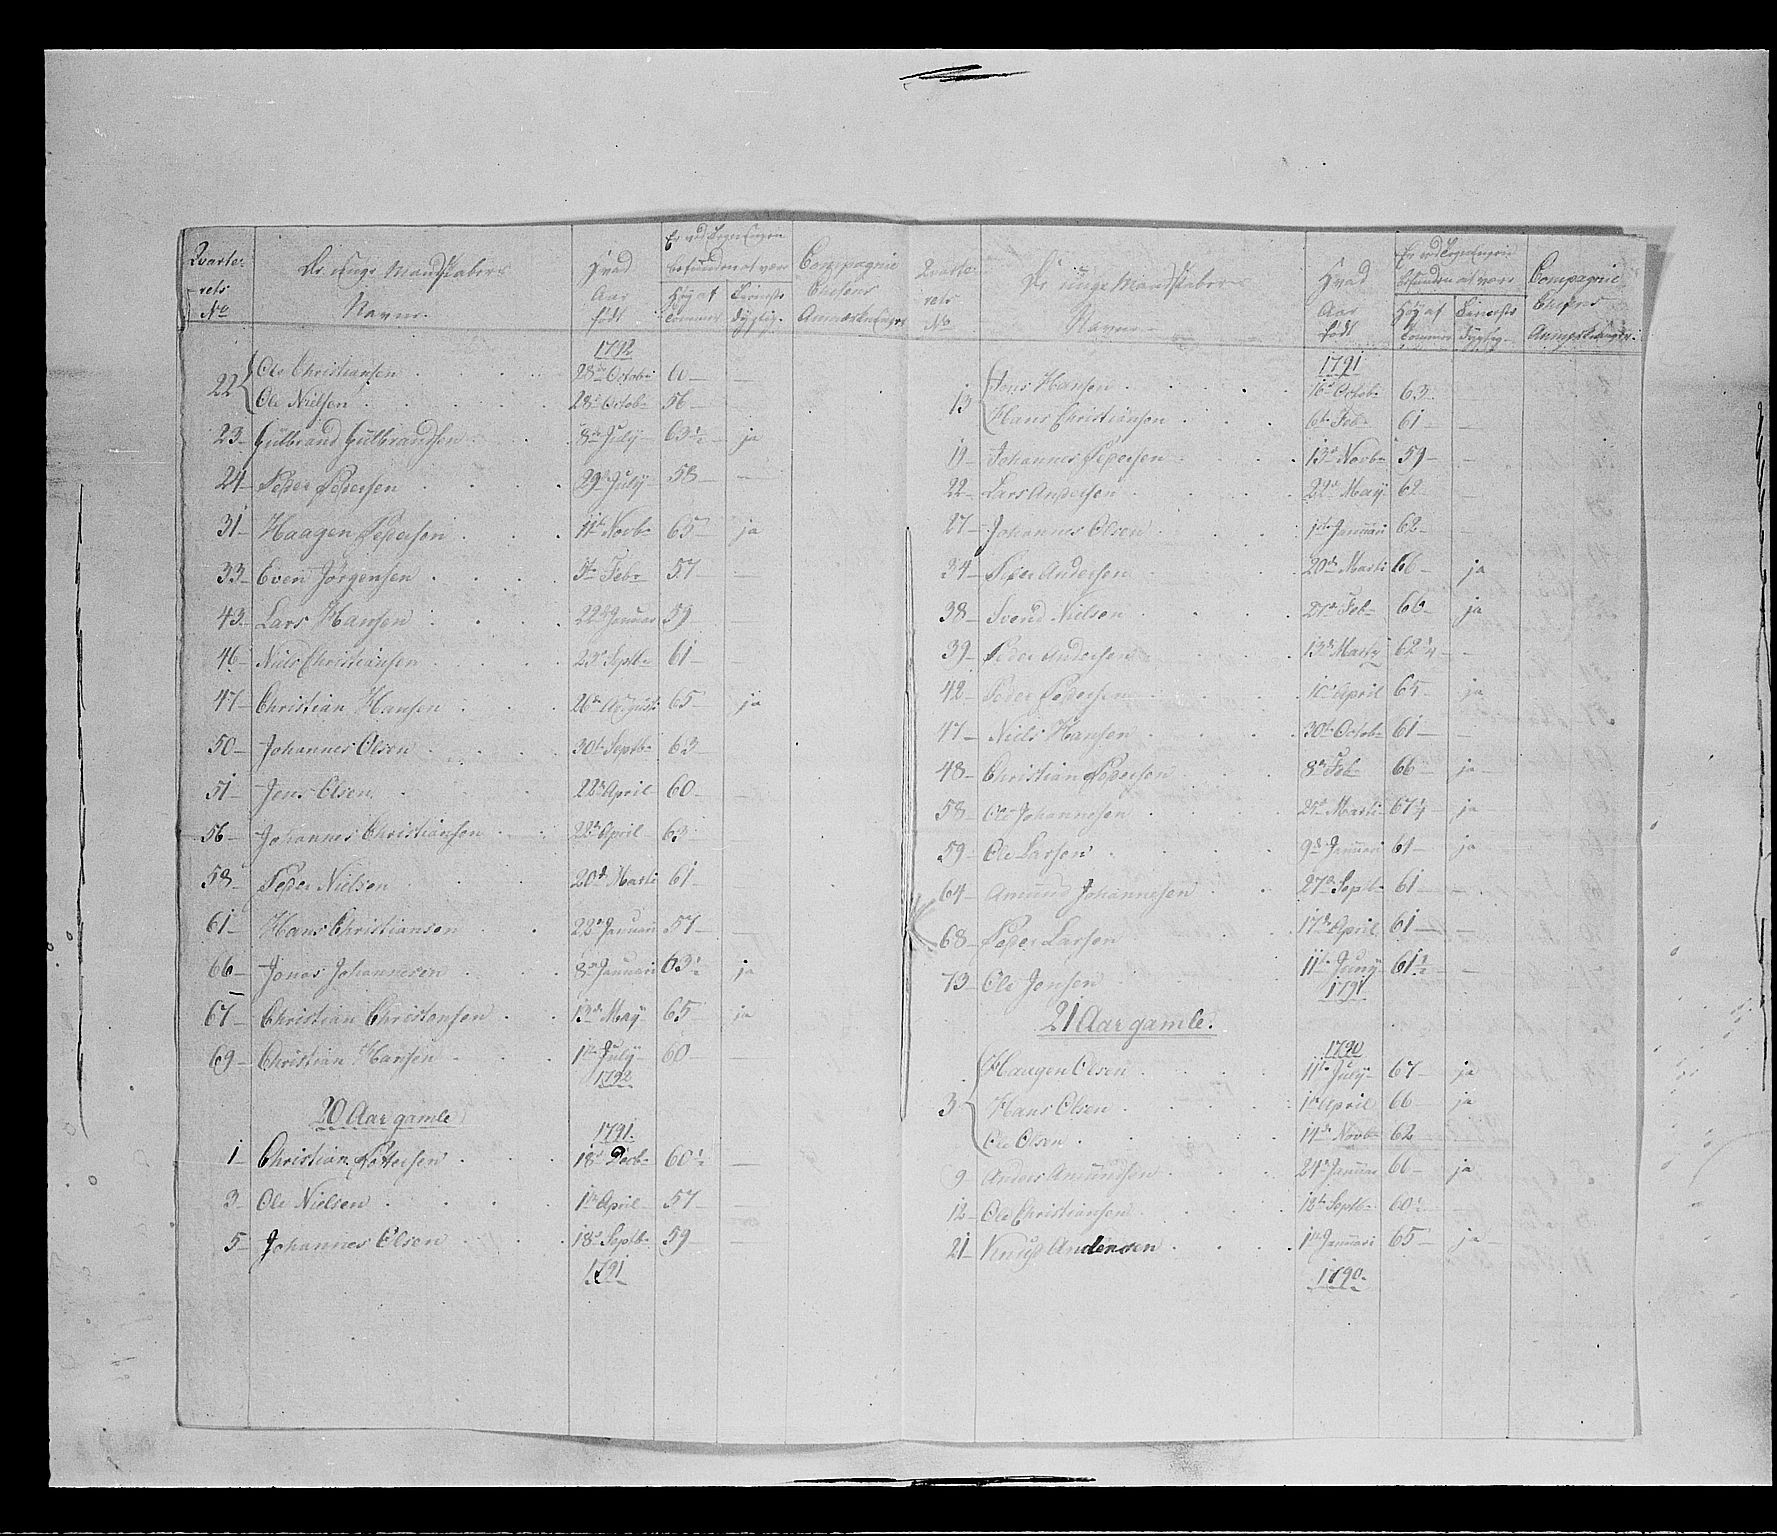 Qvarte- De unge Mandskabers Hvad Er ved Sessionen Compagnie
rets Navne. Aar befunden at være Chefens
No født Høy af Tommer Tieneste dygtig Anmærkninger
1792
22 Ole Christiansen 28de Octobr 60 —
Ole Nielsen 28de Octobr 56 —
23 Gulbrand Gulbrandsen 8de July 63½ ja
24 Peder Pedersen 29de July 58 —
31 Haagen Pedersen 11te Novbr 65 ja
33 Even Jörgensen 5te Febr 57 —
43 Lars Hansen 22de Januar 59
46 Niels Christiansen 23de Septbr 61 —
47 Christian Hansen 26de Augusti 65 ja
50 Johannes Olsen 30te Septbr 63 —
51 Jens Olsen 22de April 60 —
56 Johannes Christiansen 22de April 63
58 Peder Nielsen 20de Marti 61
61 Hans Christiansen 22de Januari 57 —
66 Jonas Johannesen 8de Januari 63½ ja
67 Christian Christensen 13de May 65 ja
69 Christian Hansen 1ste July 60 —
1792
20 Aar gamle
1791.
1 Christian Pettersen 18de Decbr 60½ —
3 Ole Nielsen 1ste April 57 —
5 Johannes Olsen 18de Septbr 59 —
1791
Qvarte- De unge Mandskabers Hvad Er ved Sessionen Compagnie
rets Navne Aar befunden at være Chefens
No født Høy af Tommer Tieneste dygtig Anmærkninger.
1791
13 Jens Hansen 16de Octobr 63 —
Hans Christiansen 6te Febr 61 —
19 Johannes Pedersen 13de Novbr 59 —
22 Lars Andersen 22de May 62 —
27 Johannes Olsen 1ste Januari 62 —
34 Peder Andersen 20de Marti 66 ja
38 Svend Nielsen 27de Feb 66 ja
39 Peder Andersen 13de Marty 62¼ —
42 Peder Pedersen 10de April 65 ja
47 Niels Hansen 30te Octobr 61 —
48 Christian Pedersen 8de Feb 66 ja
58 Ole Johannesen 25de Marti 67¼ ja
59 Ole Larsen 9de Januari 61 ja
64 Amund Johannesen 27de Septbr 61 —
68 Peder Larsen 17de April 61 —
73 Ole Jensen 11te Juny 61½ —
1791
21 Aar gamle.
1790
3 Haagen Olsen 11te July 67 ja
Hans Olsen 1ste April 66 ja
Ole Olsen 14de Novbr 62 —
9 Anders Amundsen 24de Januar 66 ja
12 Ole Christiansen 18de Septbr 60½
21 Knud Andersen 1ste Januari 65 ja
1790.